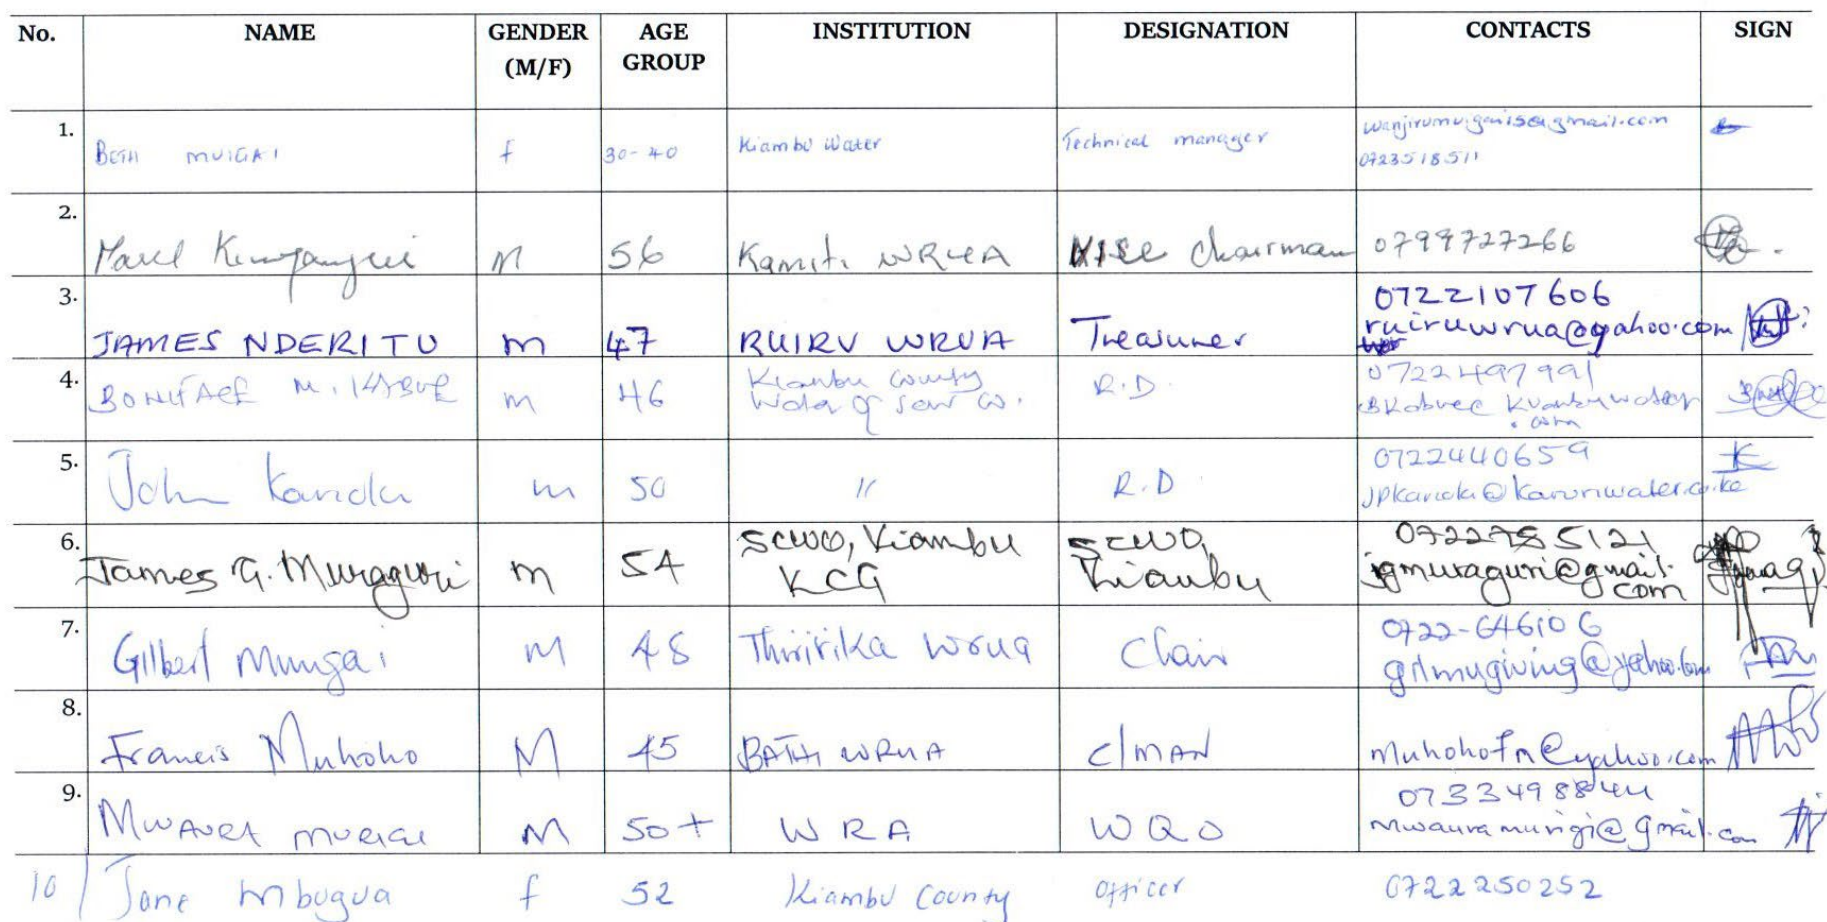 No. NAME GENDER (M/F) AGE GROUP INSTITUTION DESIGNATION CONTACTS SIGN
1. BETH MUIGAI f 30-40 Kiambu Water Technical manager 0723518511
2. M 56 Kamiti WRUA Chairman 0799727266
3. JAMES NDERITU m 47 RUIRU WRUA Treasurer 0722107606
ruiruwrua@yahoo.com
4. BONIFACE M. m 46 Kiambu County R.D. 0722497991
Water
5. John Kariuki m 50 〃 R.D 0722440659
jpkariuki@karuriwater.co.ke
6. James G. Muraguri m 54 SCWO, Kiambu SCWO,
KCG Kiambu jgmuraguri@gmail.
com
7. Gilbert Mungai M 48 Thiririka wrua Chair 0722-646106
gilmugiving@yahoo.com
8. Francis Muhoho M 45 BATHI WRUA C/MAN muhohofn@yahoo.com
9. MWAURA MURIGI M 50+ WRA WQO 0733498844
mwauramurigi@gmail.com
10 Jane Mbugua f 52 Kiambu County officer 0722250252